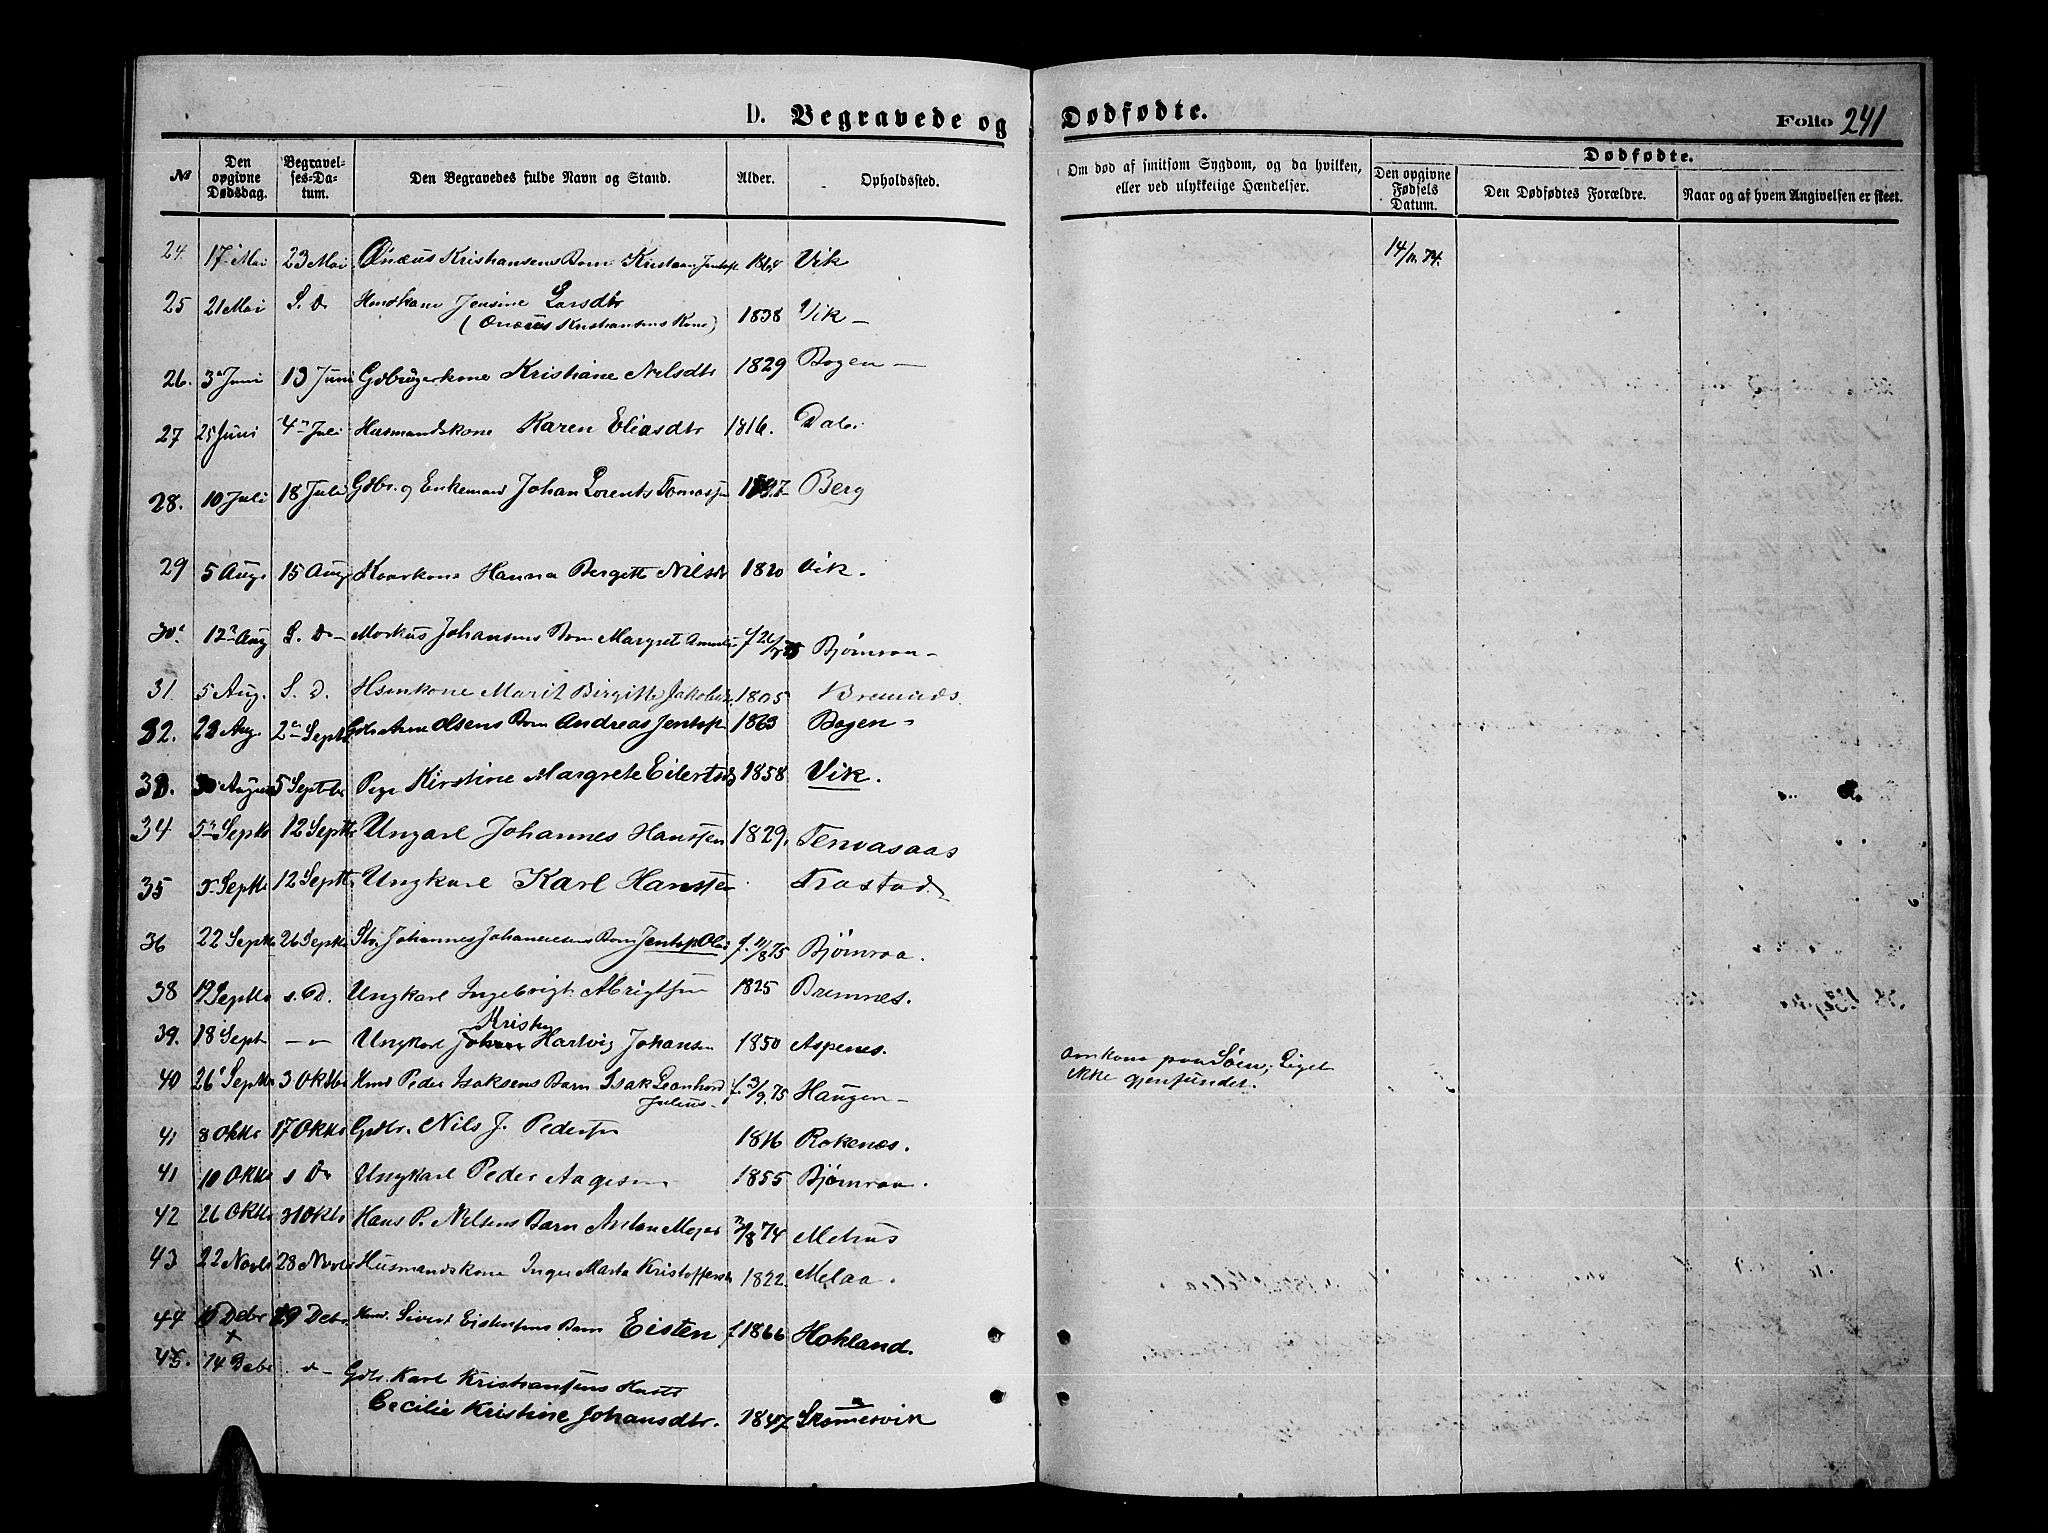 D. Begravede og Dødfødte.
Folio 241
№ Den opgivne Dødsdag. Begravelses-Datum. Den Begravedes fulde Navn og Stand. Alder. Opholdssted. Om død af smitsom Sygdom, og da hvilken, eller ved ulykkelige Hændelser. Den opgivne Fødsels Datum. Dødfødte. Den Dødfødtes Forældre. Naar og af hvem Angivelsen er skeet.
24. 17 Mai 23 Mai Kristiansens Barn Kristian Jentoft 1864 Vik
25 21 Mai S. D Jensine Larsdtr
( Kristiansens Kone) 1838 Vik
26. 3 Juni 13 Juni Gdbrugerkone Kristiane Nilsdtr 1829 Bogen
27 25 Juni 4 Juli Husmandskone Karen Eliasdtr 1816. Dale
28. 10 Juli 18 Juli Gdbr. og Enkemand Johan Lorents Tomassen Berg
29 5 Aug 15 Aug Hanna Bergette Nilsdtr 1820 Vik.
30. 12 Aug S. D Markus Johansens Barn Margret Bjørnraa
31. 5 Aug. S. D. Marit Birgitte Jakobsdtr 1805
32. 28 Aug. 2 Sept Olsens Barn Andreas Jentoft 1863 Bogen
33. August 5 Septbr Pige Kirstine Margrete Eilertsd 1858 Vik.
34 5 Septb 12 Septb Ungkarl Johannes Hanssen 1829. Tenvasaas
35 Septb 12 Septb Ungkarl Karl Hanssen Trastad
36 22 Septb 26 Septb Johannes Johannesens Barn Jentoft Olai f. 11/8 75 Bjørnraa.
38 19 Septb s. D. Ungkarl Ingebrigt Albrigtsen 1825 Bremnes.
39. 18 Sept Ungkarl Kristen Hartvig Johansen 1850 Aspenes. Omkom paa Søen; Liget
ikke gjenfundet.
40 26 Septb 3 Oktbr Peder Isaksens Barn Isak Leonhard
Julius f. 3/9.75 Haugen
41 8 Oktb 17 Oktb Gdbr. Nils J. Pedersen 1816 Rokenes.
41 10 Oktb s D Ungkarl Peder Aagesen 1855 Bjørnraa.
42 26 Oktb 31 Oktb Hans P. Nilsens Barn Anton Meyer /8 74 Melhus
43 22 Novb 28 Novb Husmandskone Inger Marta Kristoffersd 1822. Melaa.
44 Debr 19 Debr. Sivert Eistensens Barn Eisten f 1866 Hokland.
45. 14 Debr Gdbr. Karl Kristiansens Hustr
Cecilie Kristine Johansdtr. 1847 Skomesvik
14/11. 74.